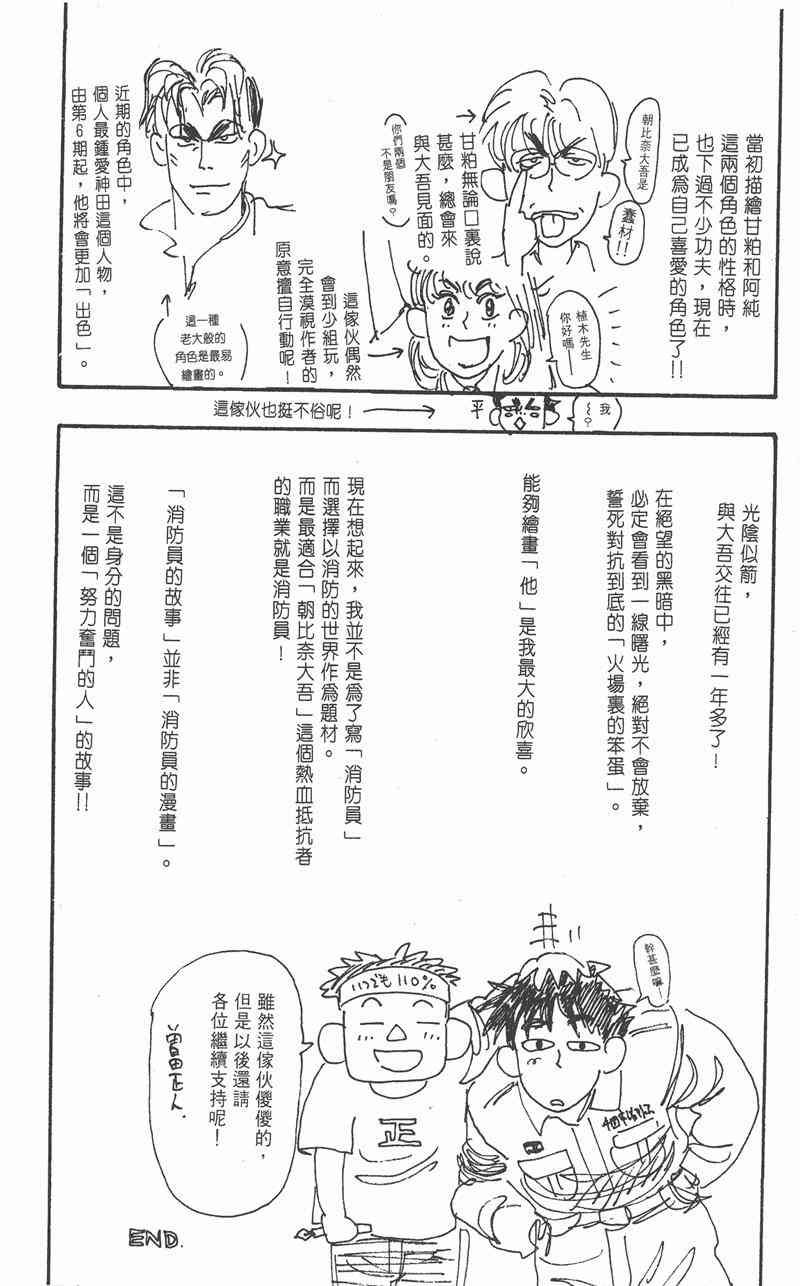 當初描繪甘粕和阿純
這兩個角色的性格時，
也下過不少功夫，現在
已成爲自己喜愛的角色了!!
朝比奈大吾是
蠢材!!
甘粕無論口裏說
甚麼，總會來
與大吾見面的。
你們兩個
不是朋友嗎？
植木先生
你好嗎—
這傢伙偶然
會到少組玩，
完全漠視作者的
原意擅自行動呢！
近期的角色中，
個人最鍾愛神田這個人物，
由第6期起，他將會更加「出色」。
這一種
老大般的
角色是最易
繪畫的。
這傢伙也挺不俗呢！
平
我
～？
光陰似箭，
與大吾交往已經有一年多了！
在絕望的黑暗中，
必定會看到一線曙光，絕對不會放棄，
誓死對抗到底的「火場裏的笨蛋」。
能夠繪畫「他」是我最大的欣喜。
現在想起來，我並不是爲了寫「消防員」
而選擇以消防的世界作爲題材。
而是最適合「朝比奈大吾」這個熱血抵抗者
的職業就是消防員！
「消防員的故事」並非「消防員的漫畫」。
這不是身分的問題，
而是一個「努力奮鬥的人」的故事!!
幹甚麼嘛—
いつでも110%
正
雖然這傢伙傻傻的，
但是以後還請
各位繼續支持呢！
曽田正人.
END.